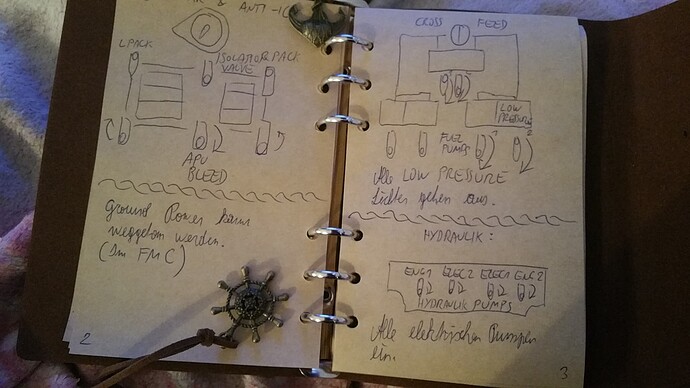 & ANTI-IC
L PACK
ISOLATOR PACK
VALVE
APU
BLEED
Ground Power kann
weggetan werden.
(Im FMC)
2
CROSS FEED
LOW
PRESSURE
FUEL
PUMPS
Alle LOW PRESSURE
Lichter gehen aus.
HYDRAULIK:
ENG1 ELEC2 ELEC1 ENG2
HYDRAULIK PUMPS
Alle elektrischen Pumpen
ein.
3